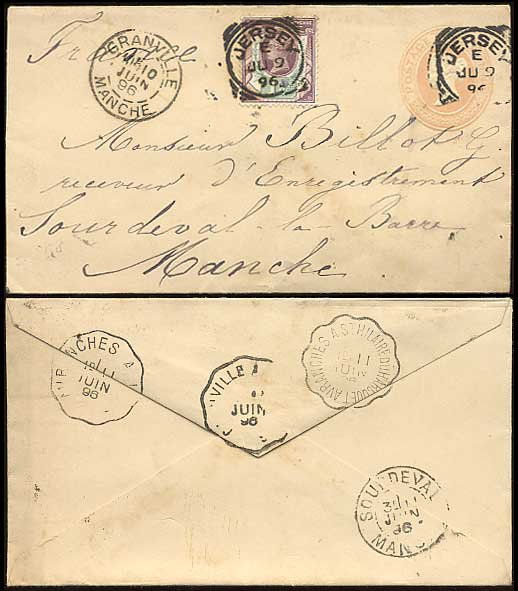 France
GRANVILLE
10
JUIN
96
MANCHE
JERSEY
E
JU 9
96
JERSEY
E
JU 9
96
POSTAGE
Monsieur Billot G.
receveur d'Enregistrement
Sourdeval-la-Barre
Manche.
RANCHES A
11
JUIN
96
VILLE A
JUIN
96
AVRANCHES A ST HILAIRE DU HARCOUET
11
JUIN
96
SOURDEVAL
3E 11
JUIN
96
MANC